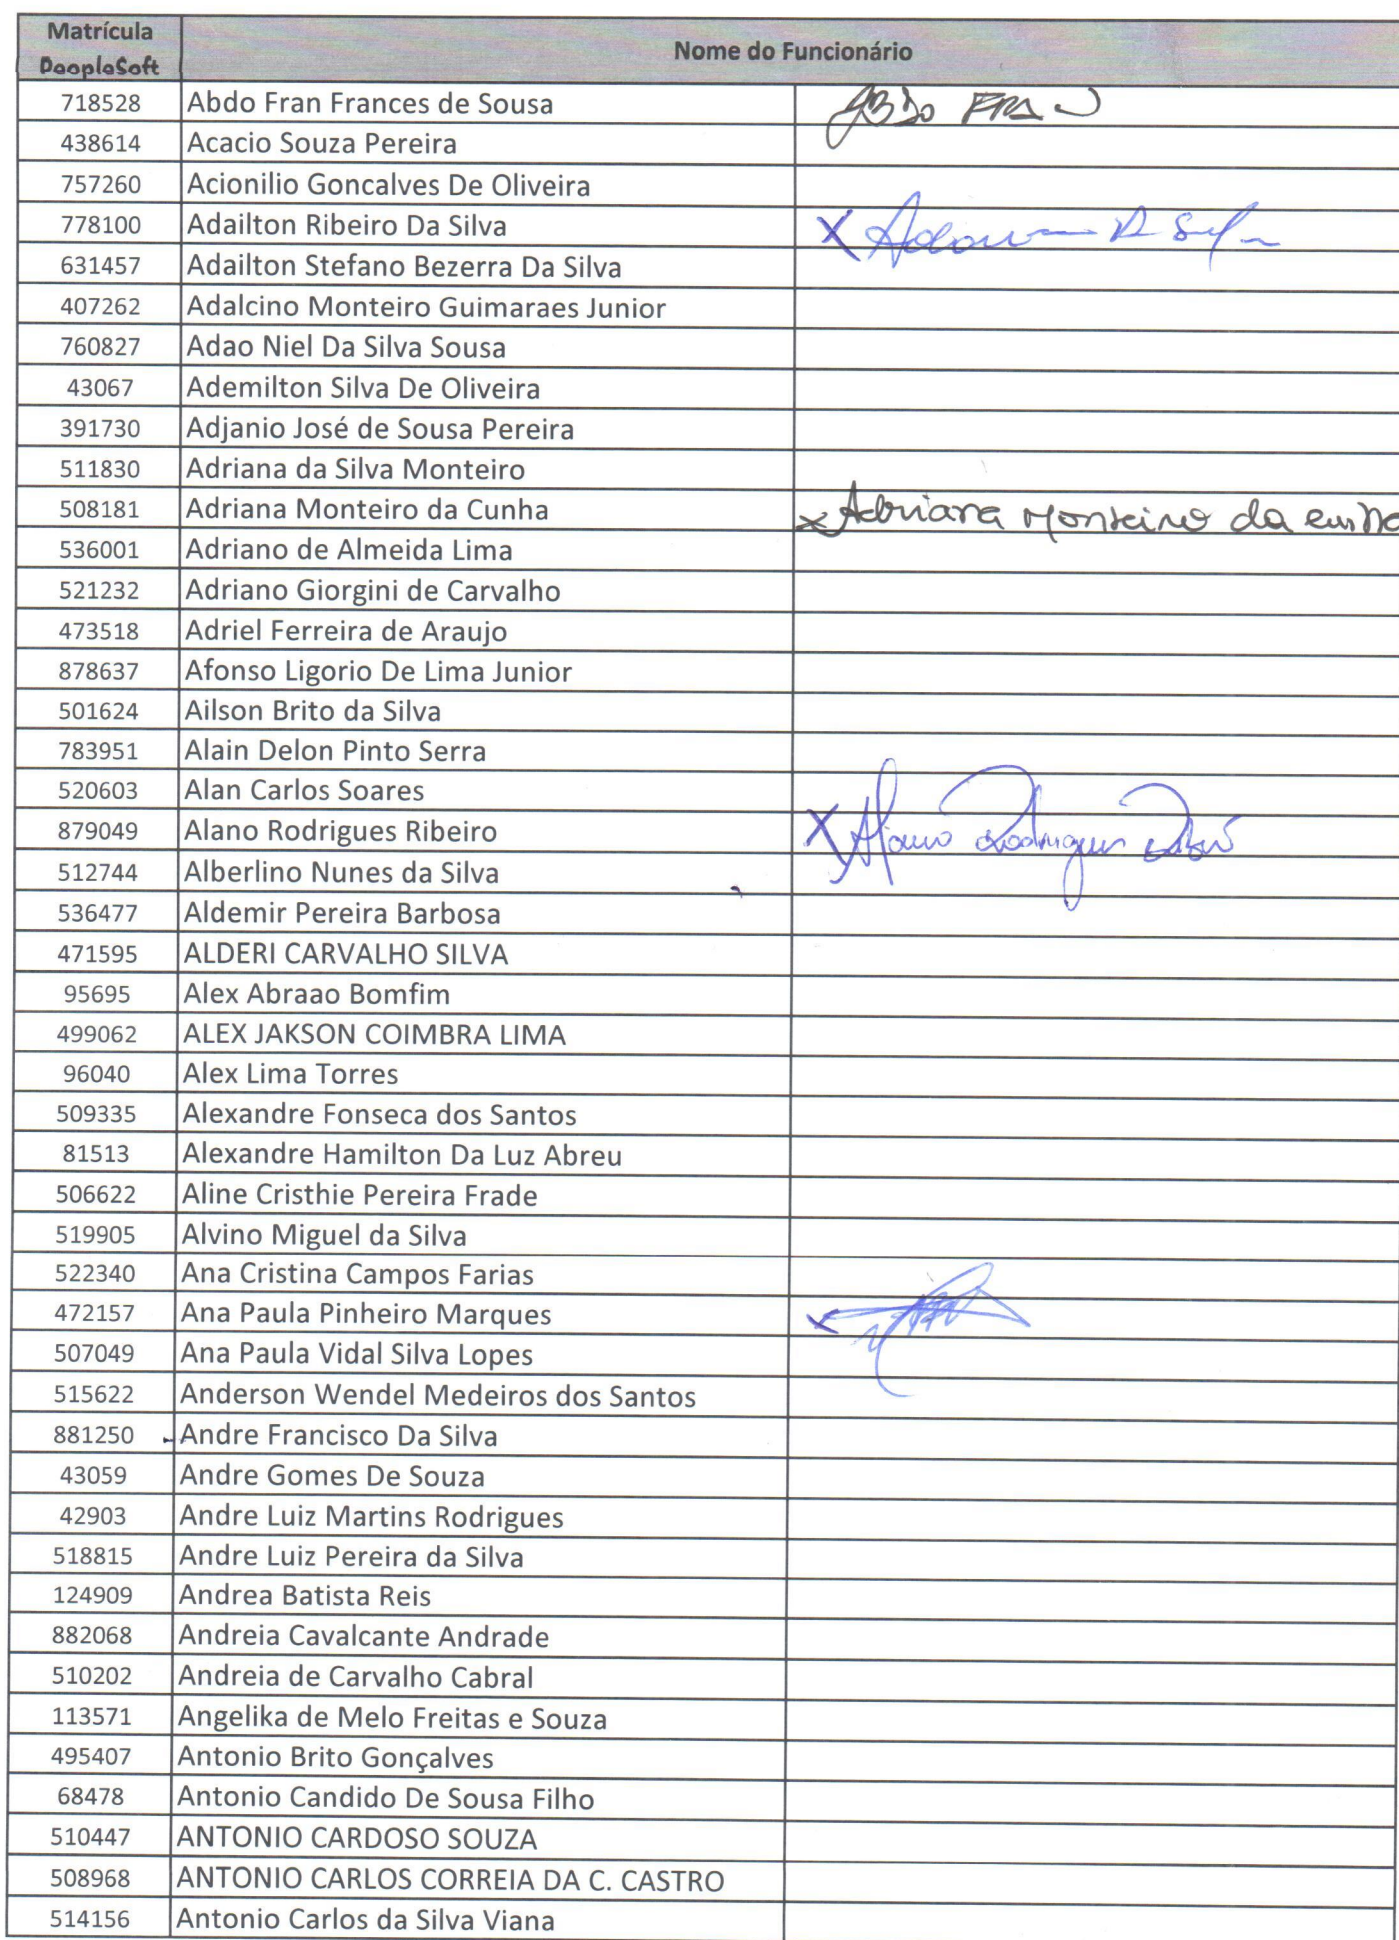 Matrícula
PeopleSoft
Nome do Funcionário
718528 Abdo Fran Frances de Sousa ABDO FRAN
438614 Acacio Souza Pereira
757260 Acionilio Goncalves De Oliveira
778100 Adailton Ribeiro Da Silva X
631457 Adailton Stefano Bezerra Da Silva
407262 Adalcino Monteiro Guimaraes Junior
760827 Adao Niel Da Silva Sousa
43067 Ademilton Silva De Oliveira
391730 Adjanio José de Sousa Pereira
511830 Adriana da Silva Monteiro
508181 Adriana Monteiro da Cunha x Adriana Monteiro da Cunha
536001 Adriano de Almeida Lima
521232 Adriano Giorgini de Carvalho
473518 Adriel Ferreira de Araujo
878637 Afonso Ligorio De Lima Junior
501624 Ailson Brito da Silva
783951 Alain Delon Pinto Serra
520603 Alan Carlos Soares
879049 Alano Rodrigues Ribeiro X Alano Rodrigues
512744 Alberlino Nunes da Silva
536477 Aldemir Pereira Barbosa
471595 ALDERI CARVALHO SILVA
95695 Alex Abraao Bomfim
499062 ALEX JAKSON COIMBRA LIMA
96040 Alex Lima Torres
509335 Alexandre Fonseca dos Santos
81513 Alexandre Hamilton Da Luz Abreu
506622 Aline Cristhie Pereira Frade
519905 Alvino Miguel da Silva
522340 Ana Cristina Campos Farias
472157 Ana Paula Pinheiro Marques x
507049 Ana Paula Vidal Silva Lopes
515622 Anderson Wendel Medeiros dos Santos
881250 Andre Francisco Da Silva
43059 Andre Gomes De Souza
42903 Andre Luiz Martins Rodrigues
518815 Andre Luiz Pereira da Silva
124909 Andrea Batista Reis
882068 Andreia Cavalcante Andrade
510202 Andreia de Carvalho Cabral
113571 Angelika de Melo Freitas e Souza
495407 Antonio Brito Gonçalves
68478 Antonio Candido De Sousa Filho
510447 ANTONIO CARDOSO SOUZA
508968 ANTONIO CARLOS CORREIA DA C. CASTRO
514156 Antonio Carlos da Silva Viana